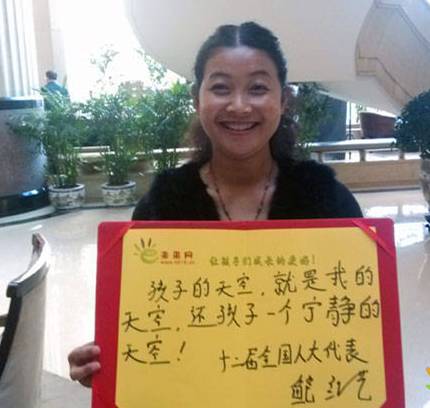 未来网
让孩子们成长的更好!
孩子的天空,就是我的
天空,还孩子一个宁静的
天空! 十二届全国人大代表